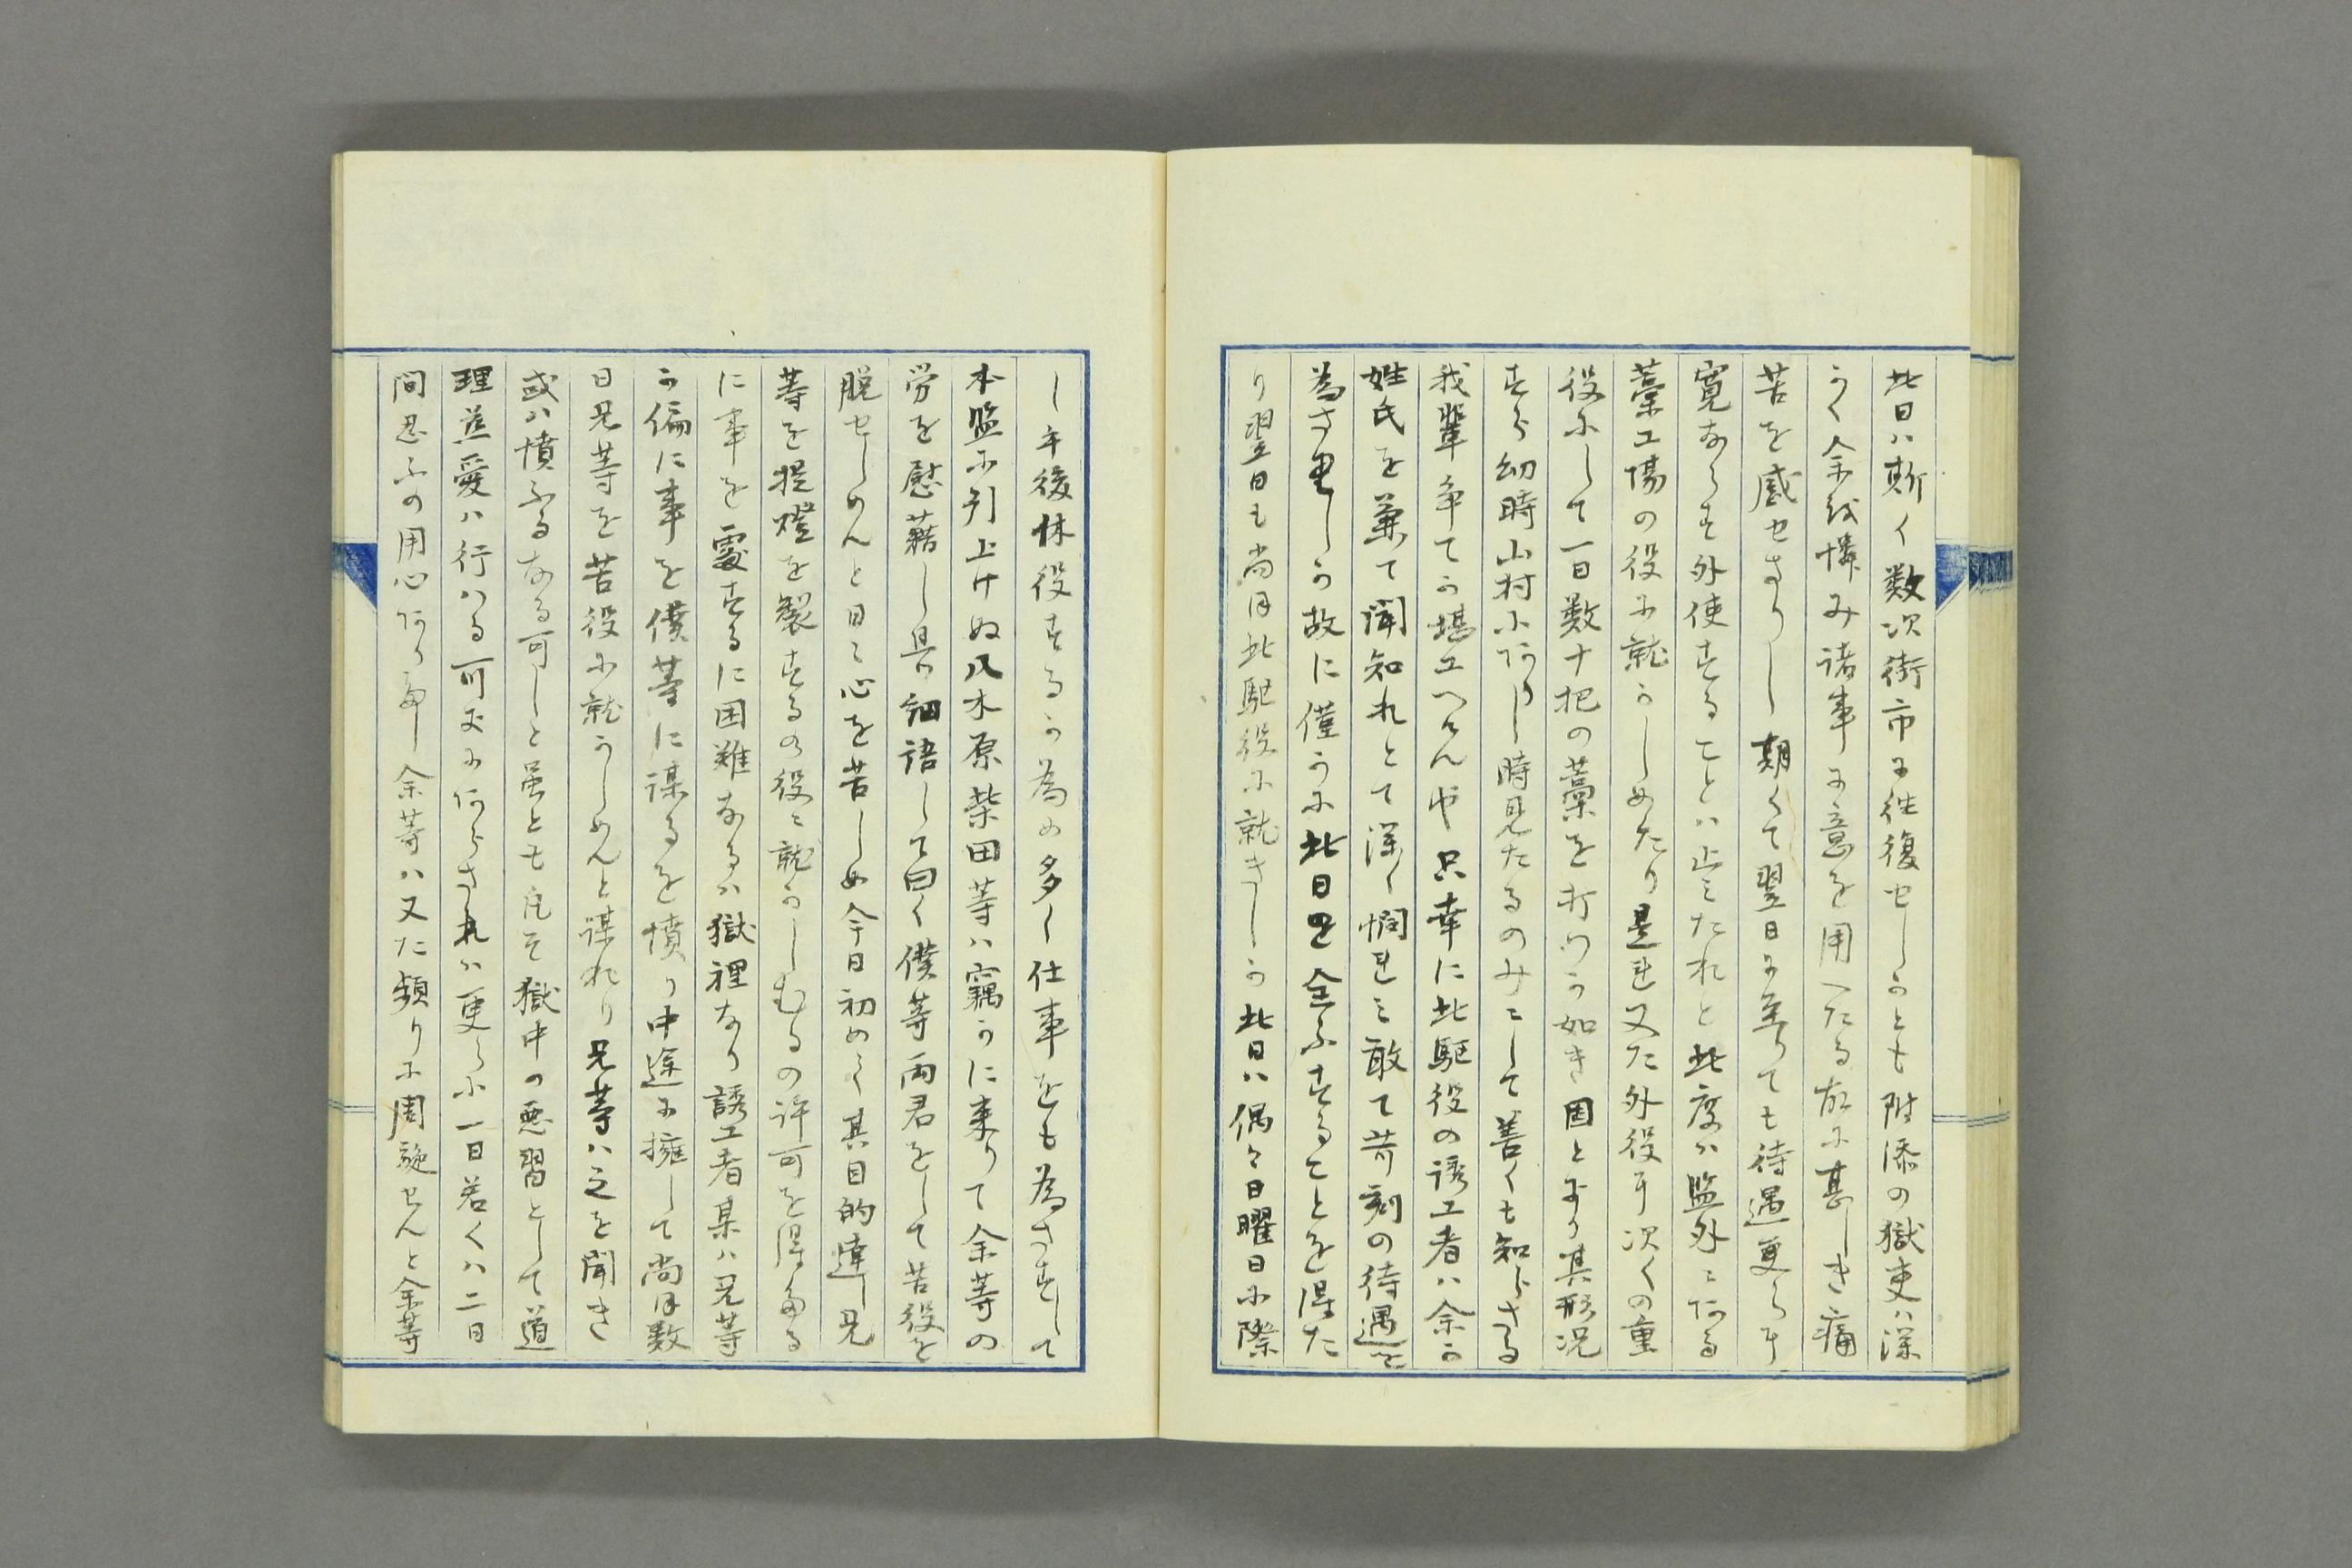 此日ハ斯く数次街市に往復せしかとも附添の獄吏ハ深
うく余を憐み諸事に意を用へたる故に甚しき痛
苦を感せさりし期くて翌日に至りても待遇更らに
寛ならす外使することハ止みたれと此度ハ監外にある
藁工場の役に就かしめたり是れ又た外役に次くの重
役にして一日数十把の藁を打つか如き固とより其形況
すら幼時山村にありし時見たるのみにして善くも知らさる
我輩争てか堪エへけんや只幸に此駆役の誘工者ハ余か
姓氏を兼て聞知れとて深く憫れミ敢て苛刻の待遇を
為さゝりしか故に僅かに此日を全ふすることを得た
り翌日も尚ほ此駆役に就きしか此日ハ偶々日曜日に際
し午後休役するか為め多く仕事をも為さすして
本監に引上けぬ八木原柴田等ハ竊かに来りて余等の
労を慰藉し具細語して曰く僕等両君をして苦役を
脱せしめんと日々心を苦しめ今日初めて其目的達し兄
等を提燈を製するの役に就かしむるの許可を得たる
に事を処するに困難なるハ獄裡なり誘工者某ハ兄等
か偏に事を僕等に謀るを憤り中途に擁して尚ほ数
日兄等を苦役に就かしめんと謀れり兄等ハ之を聞き
或ハ憤ふるなる可しと虽とも凡そ獄中の悪習として道
理慈愛ハ行ハる可きにあらされハ更らに一日若くハ二日
間忍ふの用心あるへし余等ハ又た頻りに周旋せんと余等